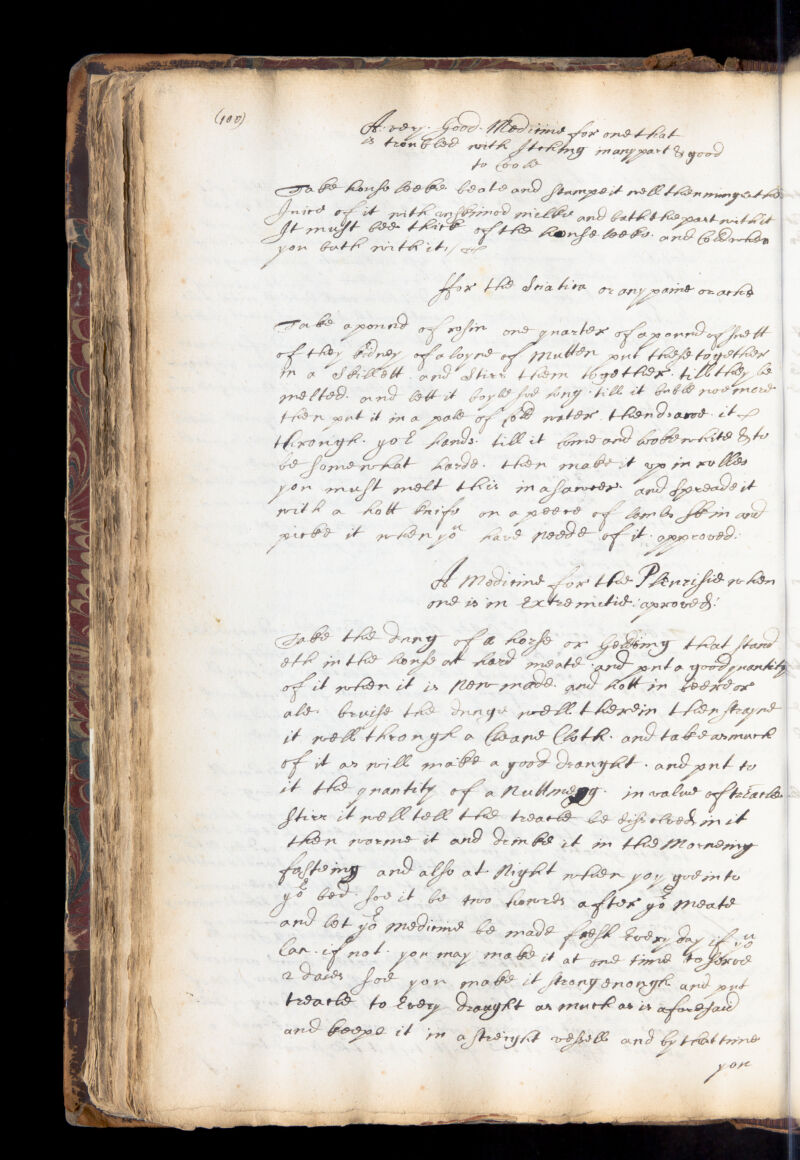 (100)
A very Good Medicine for one that
is troubled with Itching in any part & good
to Coole
Take house leeke beate and stampe it well then minge the
Juice of it with unskimed milke and bath the part with it
It must bee thick of the house leeke and Cold when
you bath with it
ffor the Sciatica or any paine or ache
Take a pound of rosin one quarter of a pound of suett
of they kidney of a loyne of Mutten put these together
in a Skillett and Stirr them together till they be
melted and lett it boyle soe long till it buble noe more
then put it in a pale of Cold water then drawe it
through yor hands till it Come and looke white & to
be somewhat harde then make it up in rolles
you must melt this in a sawcer and Spreade it
with a hott knife on a peece of lambs skin and
pricke it when you have neede of it approved:
A Medicine for the Plurisie when
one is in Extremitie: aproved:
Take the dung of a horse or Gelding that stand
eth in the house at hard meate and put a good quantity
of it when it is New made and hott in beere or
ale bruise the dunge well therein then strayne
it well through a Cleane Cloth and take as much
of it as will make a good draught and put to
it the quantity of a Nuttmegg in value of treacle
Stirr it well tell the treacle be dissolved in it
then warme it and drinke it in the Morneing
fasteing and also at Night when you goe into
yor bed soe it be two howres after yor Meate
and let yor Medicine be made fresh Every day if you
Can if not you may make it at one time to serve
2 daies soe you make it strong enough and put
treacle to Every draught as much as is aforesaid
and keepe it in a streight vessell and by that time
you